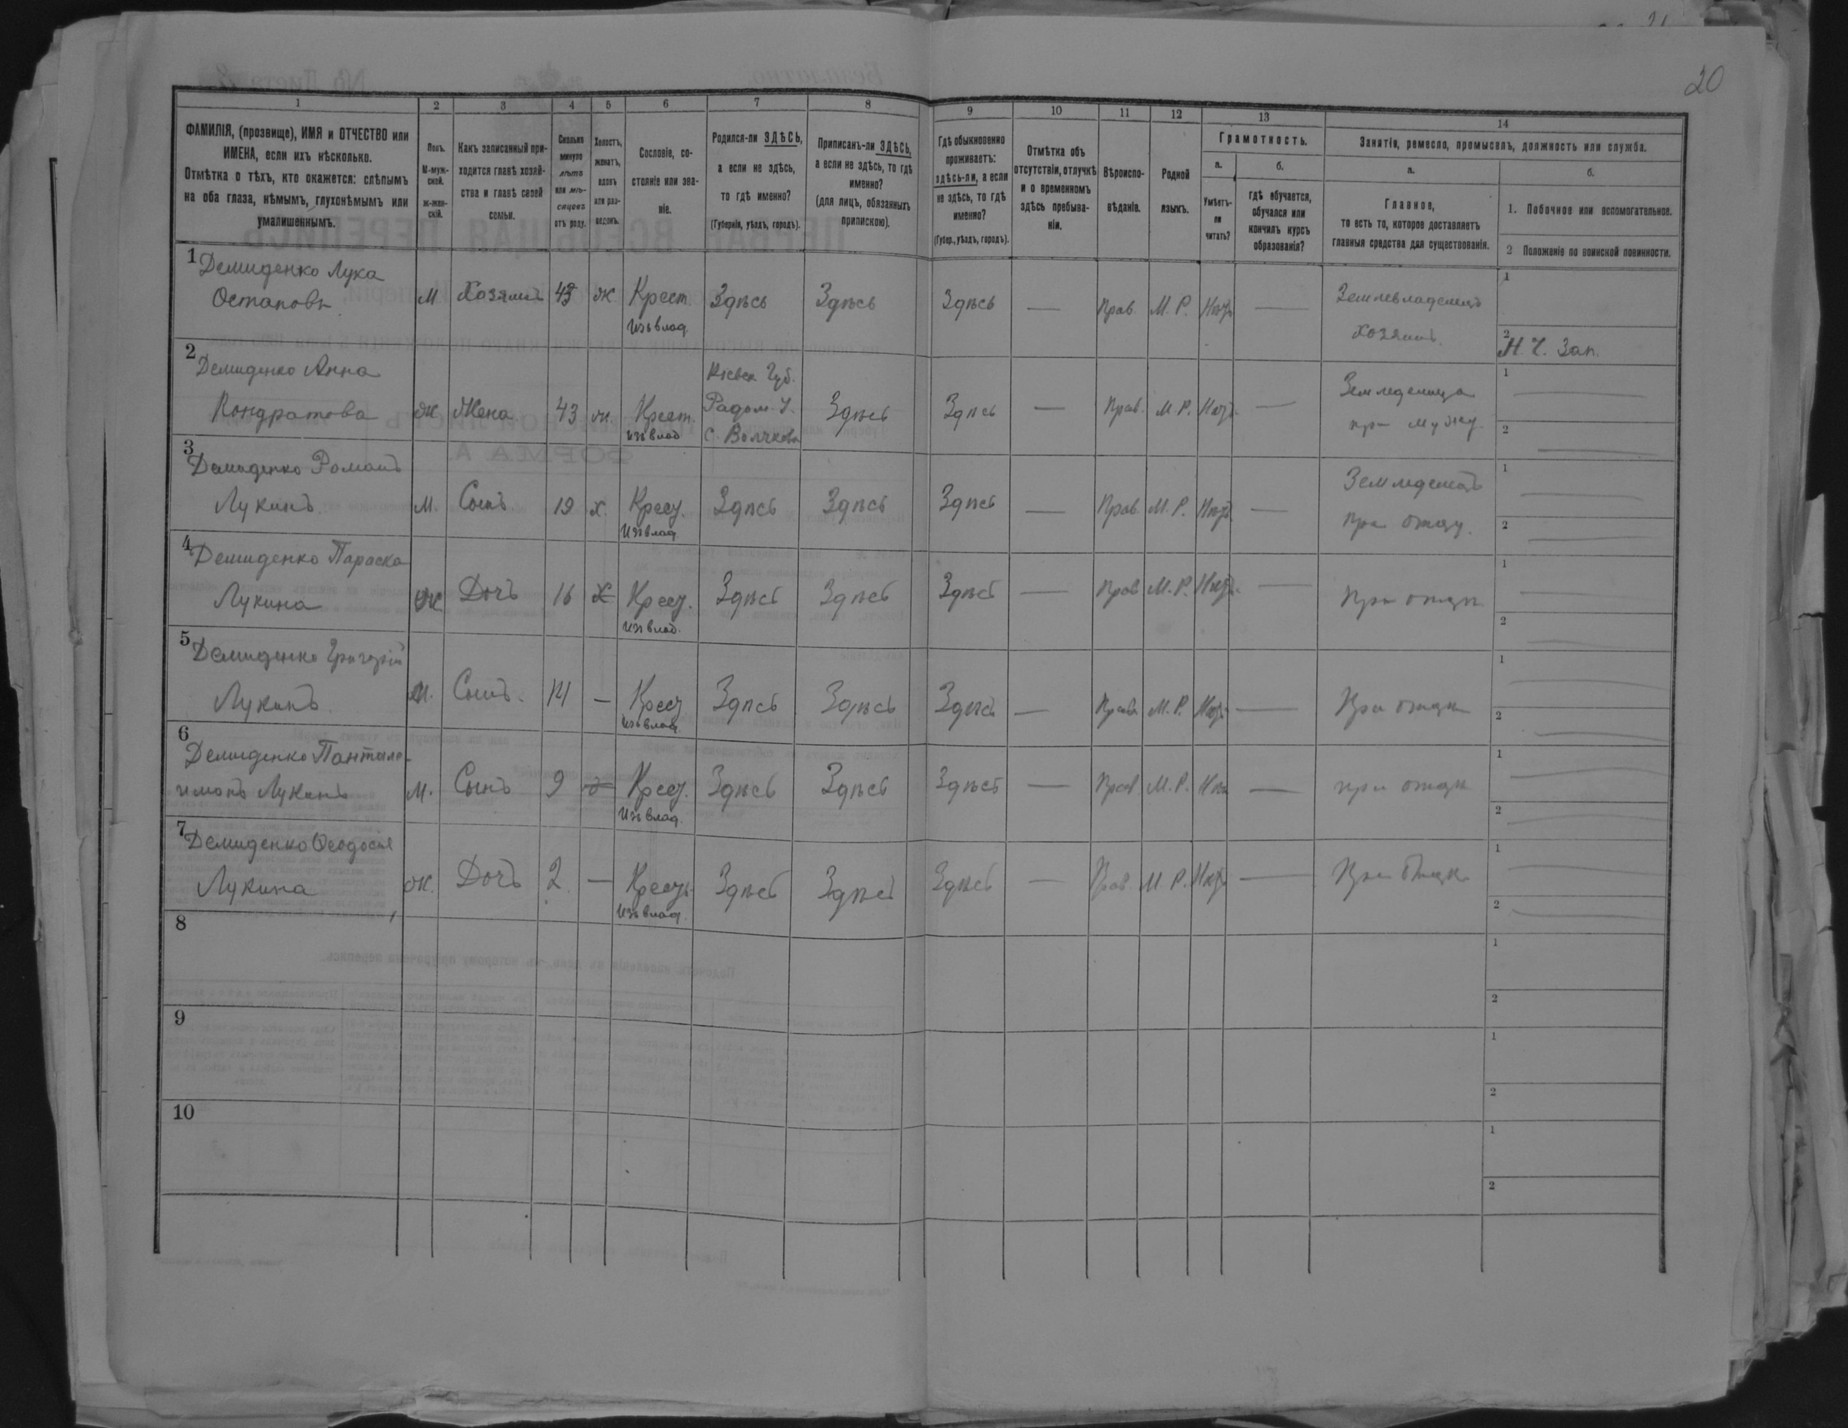 20
1 2 3 4 5 6 7 8 9 10 11 12 13 14
ФАМИЛІЯ, (прозвище), ИМЯ и ОТЧЕСТВО или
ИМЕНА, если ихъ нѣсколько.
Отмѣтка о тѣхъ, кто окажется: слѣпымъ
на оба глаза, нѣмымъ, глухонѣмымъ или
умалишеннымъ.
Полъ.
М-муж-
ской.
Ж-жен-
скій.
Какъ записанный при-
ходится главѣ хозяй-
ства и главѣ своей
семьи.
Сколько
минуло
лѣтъ
или мѣ-
сяцевъ
отъ роду.
Холостъ,
женатъ,
вдовъ
или раз-
веденъ.
Сословіе, со-
стояніе или зва-
ніе.
Родился-ли ЗДѢСЬ,
а если не здѣсь,
то гдѣ именно?
(Губернія, уѣздъ, городъ).
Приписанъ-ли ЗДѢСЬ,
а если не здѣсь, то гдѣ
именно?
(для лицъ, обязанныхъ
припискою).
Гдѣ обыкновенно
проживаетъ:
здѣсь-ли, а если
не здѣсь, то гдѣ
именно?
(Губер., уѣздъ, городъ).
Отмѣтка объ
отсутствіи, отлучкѣ
и о временномъ
здѣсь пребыва-
ніи.
Вѣроиспо-
вѣданіе.
Родной
языкъ.
Грамотность.
а.
Умѣетъ-
ли
читать?
б.
гдѣ обучается,
обучался или
кончилъ курсъ
образованія?
Занятіе, ремесло, промыселъ, должность или служба.
а.
Главное,
то есть то, которое доставляетъ
главныя средства для существованія.
б.
1. Побочное или вспомогательное.
2 Положеніе по воинской повинности.
1 Демиденко Лука
Остаповъ М. Хозяинъ 43 Ж. Крест. Здѣсь Здѣсь Здѣсь — Прав. М. Р. Нѣтъ —
Изъ влад.
Землевладелецъ
хозяинъ
1
2 Н. Ч. Зап.
2 Демиденко Анна
Кондратова Ж. Жена 43 Крест. Здѣсь Здѣсь — Прав. М. Р. Нѣтъ —
изъ влад
Кіевск Губ.
Радом. У.
с.
при мужу.
1
2
3 Демиденко Романъ
Лукинъ М. Сынъ 19 х. Крест. Здѣсь Здѣсь Здѣсь — Прав М. Р. Нѣтъ —
Изъ влад
при отцу.
1
2
4 Демиденко Параска
Лукина Ж Дочъ 16 х Крест. Здѣсь Здѣсь Здѣсь — Прав М. Р. Нѣтъ — при отцѣ
Изъ влад.
1
2
5 Демиденко Григорій
Лукинъ М. Сынъ. 14 — Крест Здѣсь Здѣсь Здѣсь — Прав М. Р. Нѣтъ — При отцѣ
Изъ влад
1
2
6 Демиденко Пантыле-
имонъ Лукинъ М. Сынъ 9 Крест. Здѣсь Здѣсь Здѣсь — Прав М. Р. — при отцѣ
Изъ влад.
1
2
7 Демиденко Ѳеодосія
Лукина Ж. Дочъ 2. — Крестъ Здѣсь Здѣсь Здѣсь — Прав М. Р. Нѣтъ — При Отцѣ
Изъ влад.
1
2
8
1
2
9
1
2
10
1
2